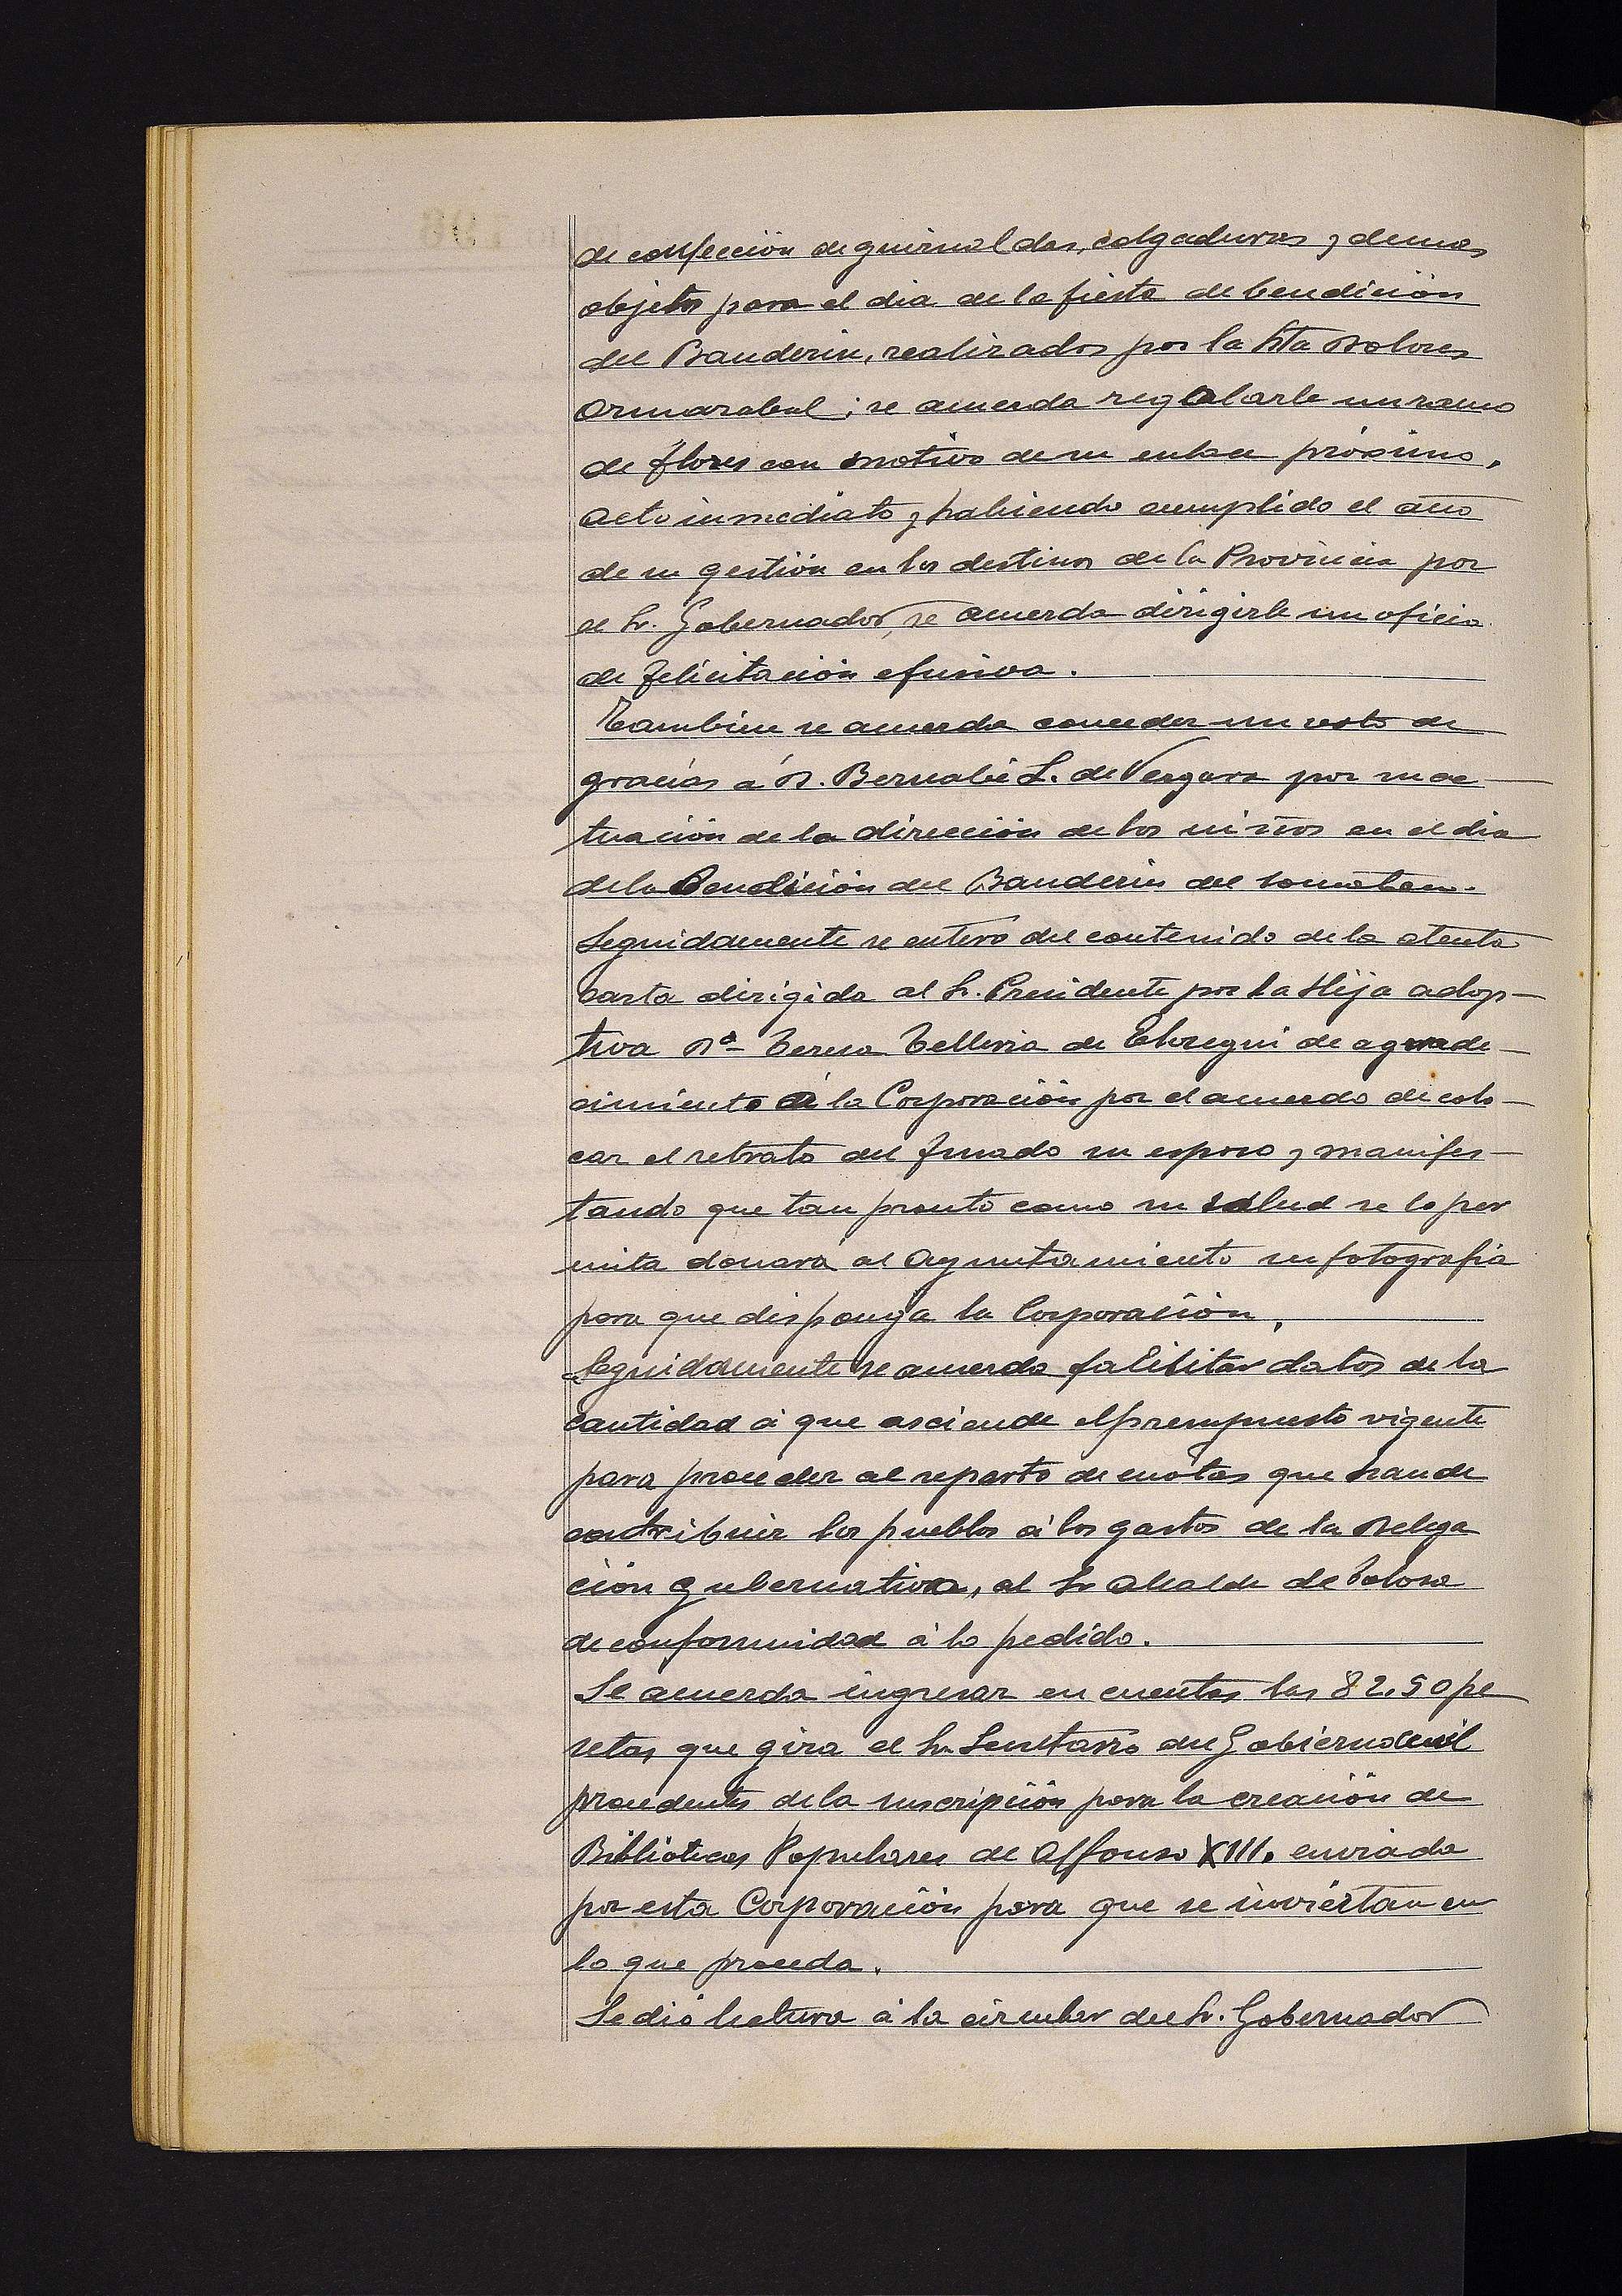 de confección de guirnaldas, colgaduras y demas
objetos para el dia de la fiesta de bendición
del Banderin, realizados por la Srta Dolores
Ormazabal; se acuerda regalarle un ramo
de flores con motivo de su enlace próximo.
Acto inmediato y habiendo cumplido el año
de su gestión en los destinos de la Provincia por
el Sr. Gobernador, se acuerda dirigirle un oficio
de felicitación efusiva.
Tambien se acuerda conceder un voto de
gracias á D. Bernabé L. de Vergara por su ac-
tuación de la dirección de los niños en el dia
de la Bendición del Banderin del somaten.
Seguidamente se enteró del contenido de la atenta
carta dirigida al Sr. Presidente por la Hija adop-
tiva Dª Teresa Telleria de Elosegui de agrade-
cimiento á la Corporación por el acuerdo de colo-
car el retrato del finado su esposo y manifes-
tando que tan pronto como su salud se lo per
mita donará al Ayuntamiento su fotografia
para que disponga la Corporación.
Seguidamente se acuerda facilitar datos de la
cantidad á que asciende el presupuesto vigente
para proceder al reparto de cuotas que han de
contribuir los pueblos á los gastos de la Delega
ción gubernativa, al Sr Alcalde de Tolosa
de conformidad á lo pedido.
Se acuerda ingresar en cuentas las 82.50 pe
setas que gira el Sr Secretario del Gobierno Civil
procedentes de la suscripción para la creación de
Bibliotecas Populares de Alfonso XIII. enviada
por esta Corporación para que se inviertan en
lo que proceda.
Se dió lectura á la circular del Sr. Gobernador